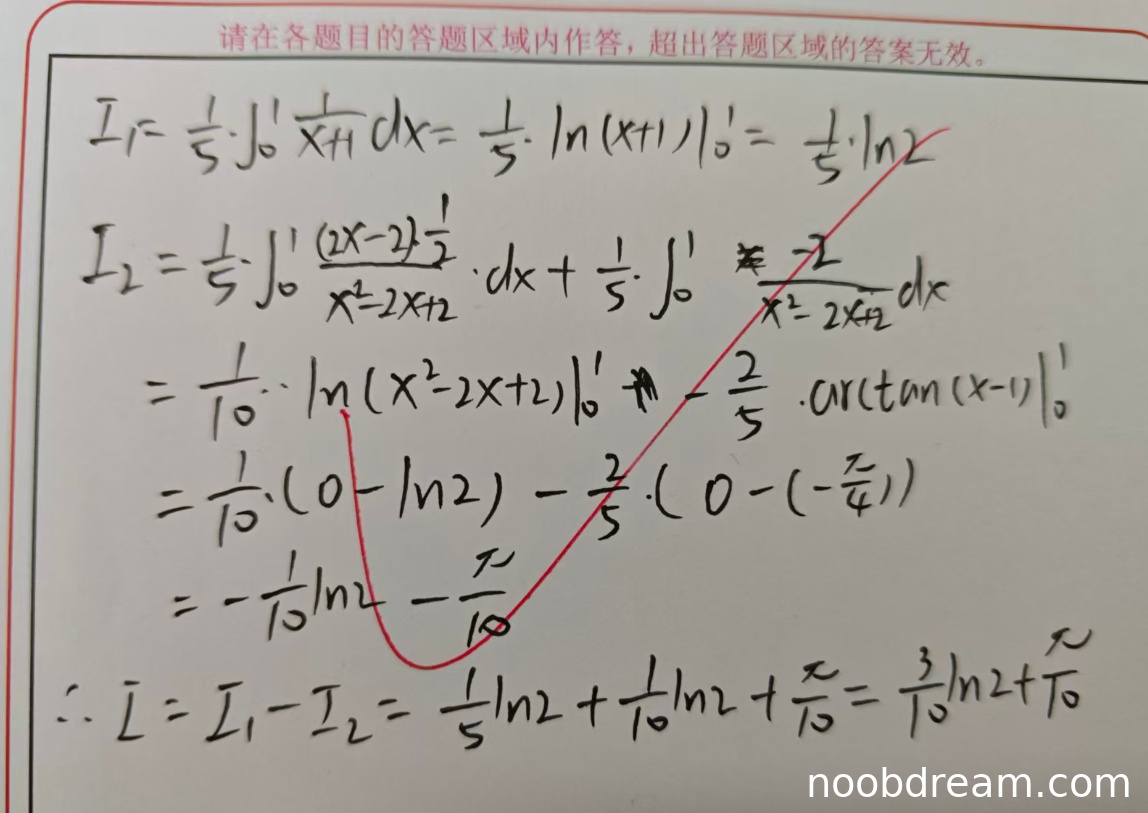 请在各题目的答题区域内作答，超出答题区域的答案无效。
I₁= 1/5·∫₀¹ 1/(x+1) dx= 1/5·ln(x+1)|₀¹= 1/5·ln2
I₂ = 1/5·∫₀¹ ((2x-2)·1/2)/(x²-2x+2)·dx + 1/5·∫₀¹ -2/(x²-2x+2) dx
= 1/10·ln(x²-2x+2)|₀¹ - 2/5·arctan(x-1)|₀¹
= 1/10·(0-ln2) - 2/5·(0-(-π/4))
= -1/10 ln2 - π/10
∴ I = I₁-I₂ = 1/5 ln2 + 1/10 ln2 + π/10 = 3/10 ln2 + π/10
noobdream.com